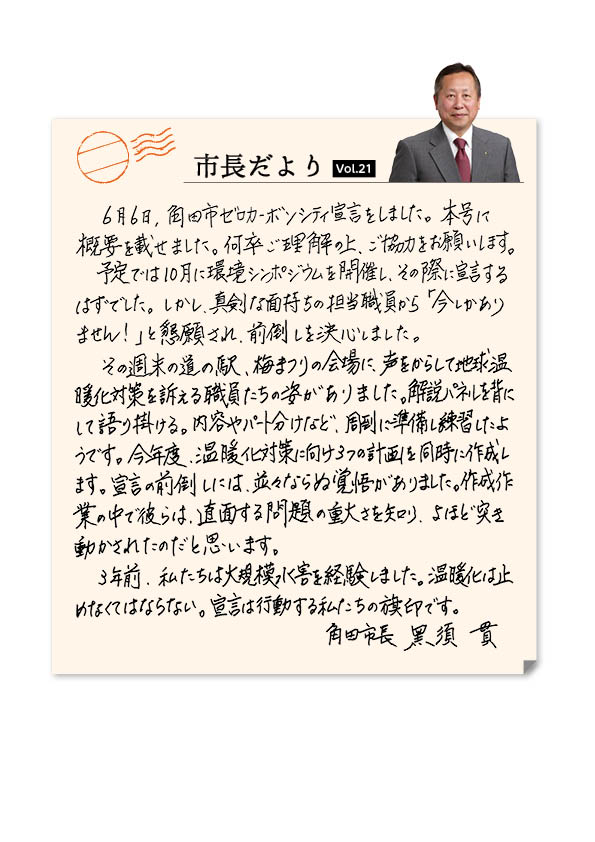 市長だより Vol.21
6月6日，角田市ゼロカーボンシティ宣言をしました。本号に
概要を載せました。何卒ご理解の上、ご協力をお願いします。
予定では10月に環境シンポジウムを開催し、その際に宣言する
はずでした。しかし、真剣な面持ちの担当職員から「今しかあり
ません！」と懇願され、前倒しを決心しました。
その週末の道の駅、梅まつりの会場に、声をからして地球温
暖化対策を訴える職員たちの姿がありました。解説パネルを背に
して語り掛ける。内容やパート分けなど、周到に準備し練習したよ
うです。今年度、温暖化対策に向け3つの計画を同時に作成し
ます。宣言の前倒しには、並々ならぬ覚悟がありました。作成作
業の中で彼らは、直面する問題の重大さを知り、よほど突き
動かされたのだと思います。
3年前、私たちは大規模水害を経験しました。温暖化は止
めなくてはならない。宣言は行動する私たちの旗印です。
角田市長 黒須 貫